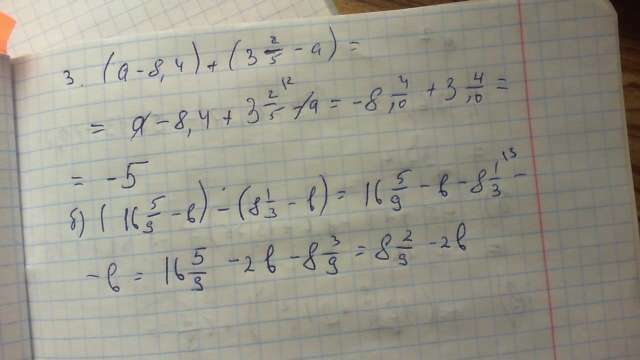 3. (a - 8,4) + (3 2/5 - a) =
= a - 8,4 + 3 2/5 ¹² - a = -8 4/10 + 3 4/10 =
= -5
б) (16 5/9 - в) - (8 1/3 - в) = 16 5/9 - в - 8 1/3 ¹³ -
- в = 16 5/9 - 2в - 8 3/9 = 8 2/9 - 2в